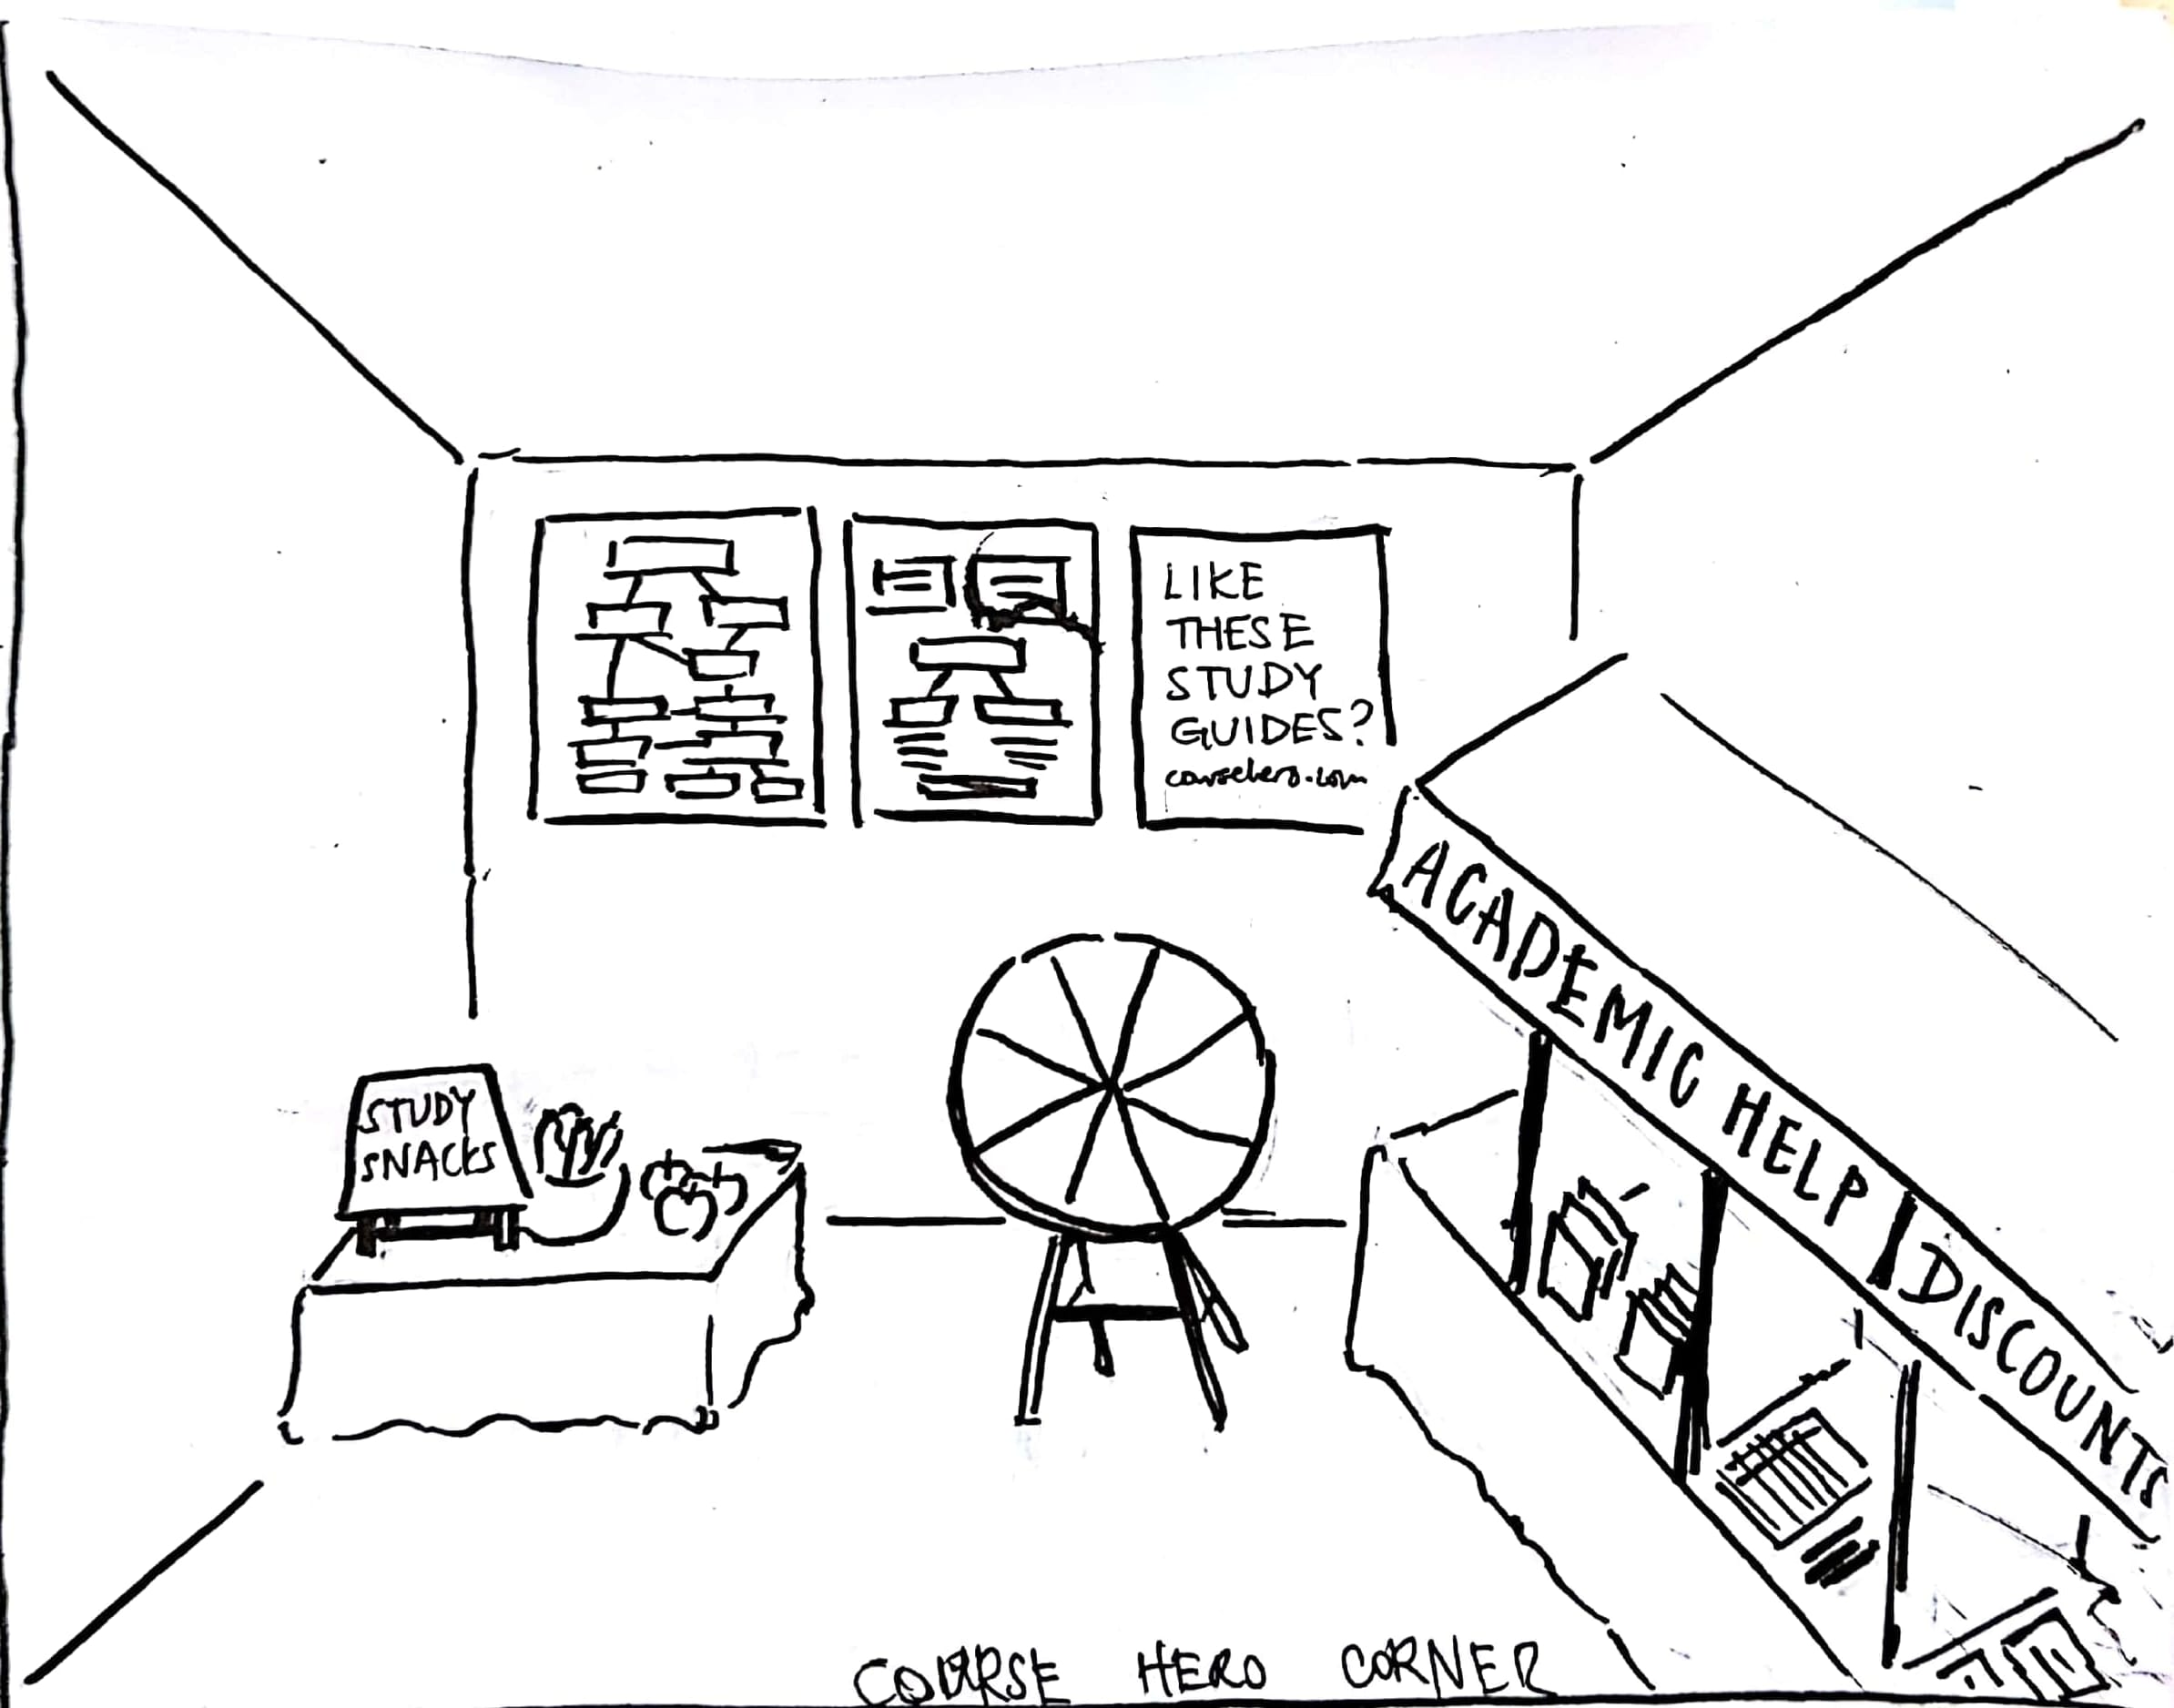 LIKE
THESE
STUDY
GUIDES?
coursehero.com
ACADEMIC HELP | DISCOUNTS
STUDY
SNACKS
COURSE HERO CORNER